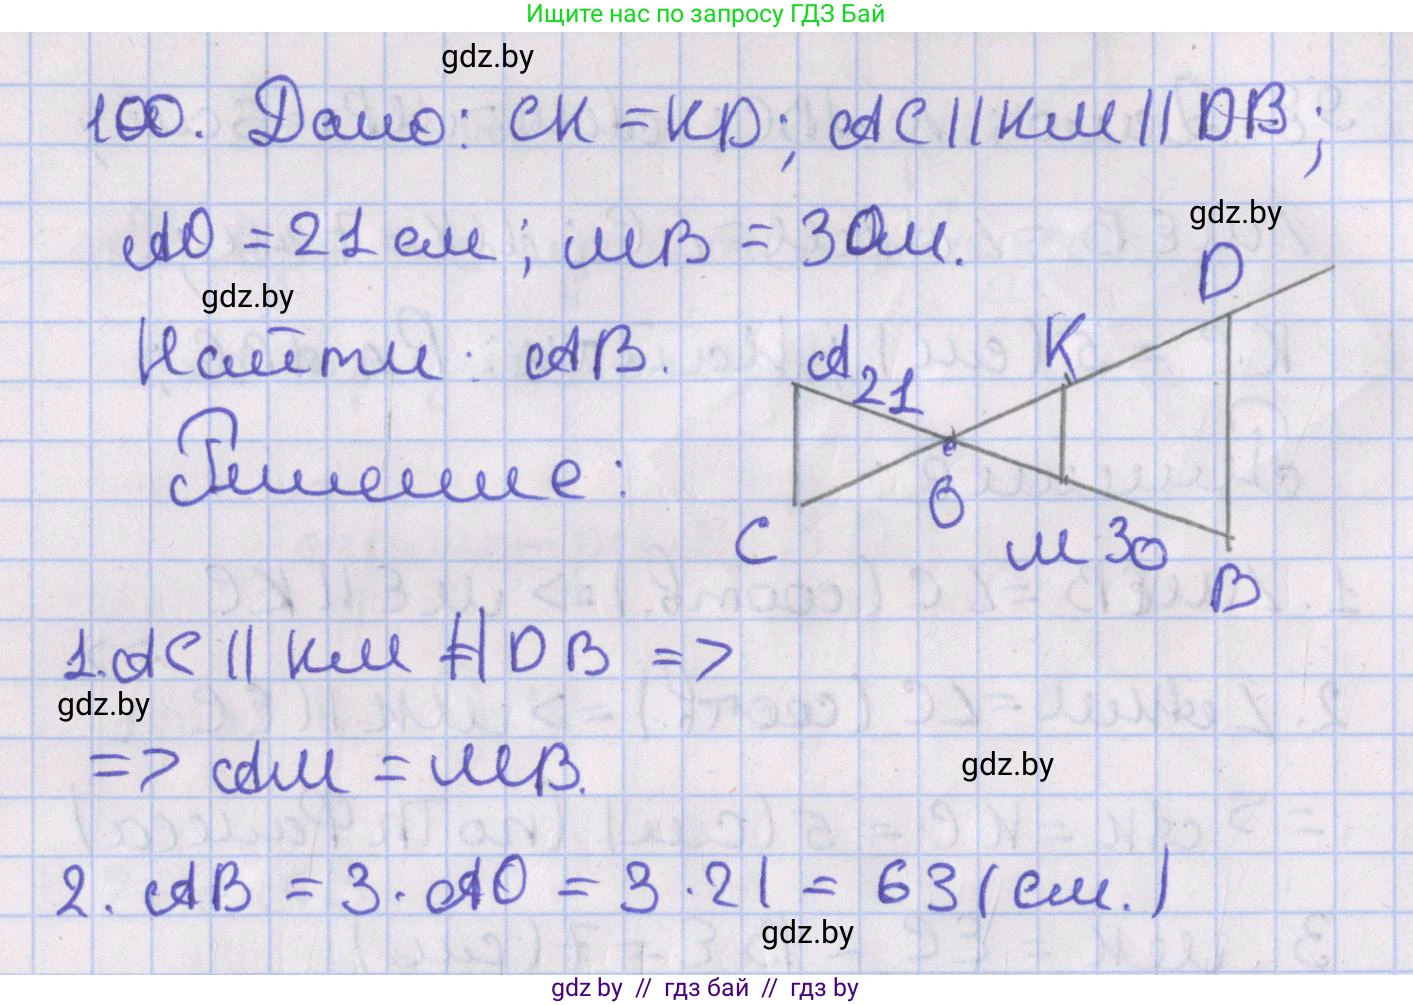 Ищите нас по запросу ГДЗ Бай
gdz.by
100. Дано: CK = KD; AC || KM || DB;
gdz.by
AO = 21 см; MB = 30м.
gdz.by
Найти: AB.
Решение:
A
21
K
D
C
O
M 30
B
1. AC || KM || DB =>
gdz.by
=> AM = MB.
gdz.by
2. AB = 3 · AO = 3 · 21 = 63 (см.)
gdz.by
gdz by // гдз бай // гдз by